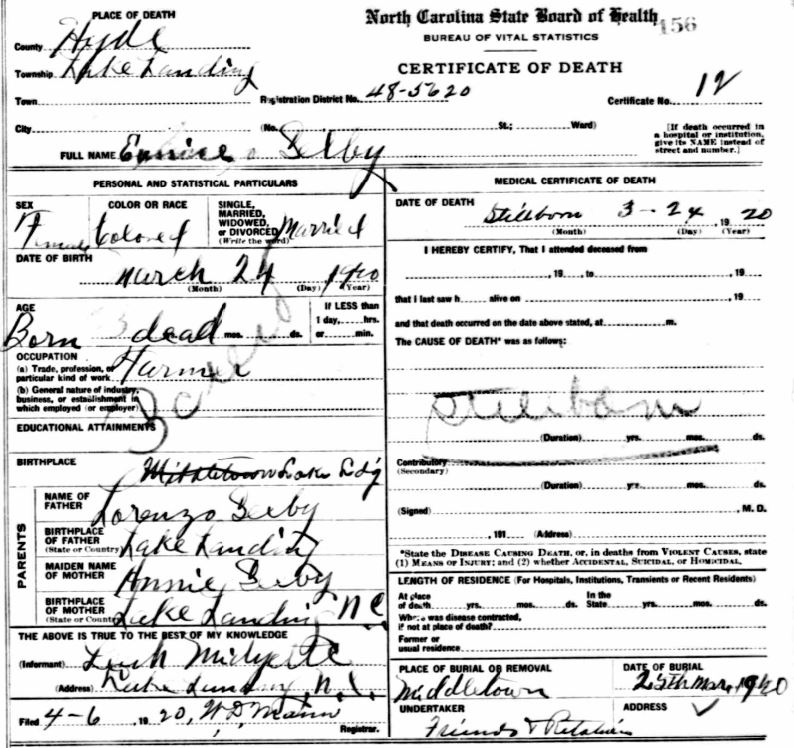 PLACE OF DEATH
North Carolina State Board of Health
156
BUREAU OF VITAL STATISTICS
County Hyde
CERTIFICATE OF DEATH
Township Lake Landing
Town
Registration District No. 48-5620
Certificate No. 12
City
(No. St.; Ward)
[If death occurred in a hospital or institution, give its NAME instead of street and number.]
FULL NAME Eunice Selby
PERSONAL AND STATISTICAL PARTICULARS
SEX
Female
COLOR OR RACE
Colored
SINGLE, MARRIED, WIDOWED, or DIVORCED
(Write the word)
Married
DATE OF BIRTH
March 24 1920
(Month) (Day) (Year)
AGE
Born dead mos. ds.
If LESS than
1 day, hrs.
or min.
OCCUPATION
(a) Trade, profession, or
particular kind of work Farmer
(b) General nature of industry,
business, or establishment in
which employed (or employer)
EDUCATIONAL ATTAINMENTS
BIRTHPLACE
Middletown Lake Ldg
PARENTS
NAME OF
FATHER Lorenzo Selby
BIRTHPLACE
OF FATHER
(State or Country) Lake Landing
MAIDEN NAME
OF MOTHER Annie Selby
BIRTHPLACE
OF MOTHER
(State or Country) Lake Landing N C
THE ABOVE IS TRUE TO THE BEST OF MY KNOWLEDGE
(Informant) Midyette
(Address) Lake Landing, N.C.
Filed 4-6, 1920, W.D. Mann
Registrar.
MEDICAL CERTIFICATE OF DEATH
DATE OF DEATH
Stillborn 3 - 24, 1920
(Month) (Day) (Year)
I HEREBY CERTIFY, That I attended deceased from
, 19 , to , 19
that I last saw h alive on , 19
and that death occurred on the date above stated, at m.
The CAUSE OF DEATH* was as follows:
Stillborn
(Duration) yrs. mos. ds.
Contributory
(Secondary)
(Duration) yrs. mos. ds.
(Signed) , M. D.
, 191 (Address)
*State the DISEASE CAUSING DEATH, or, in deaths from VIOLENT CAUSES, state
(1) MEANS OF INJURY; and (2) whether ACCIDENTAL, SUICIDAL, OR HOMICIDAL.
LENGTH OF RESIDENCE (For Hospitals, Institutions, Transients or Recent Residents)
At place
of death yrs. mos. ds.
In the
State yrs. mos. ds.
Where was disease contracted,
if not at place of death?
Former or
usual residence
PLACE OF BURIAL OR REMOVAL
Middletown
DATE OF BURIAL
25th Mar, 1920
UNDERTAKER
Friends & Relations
ADDRESS